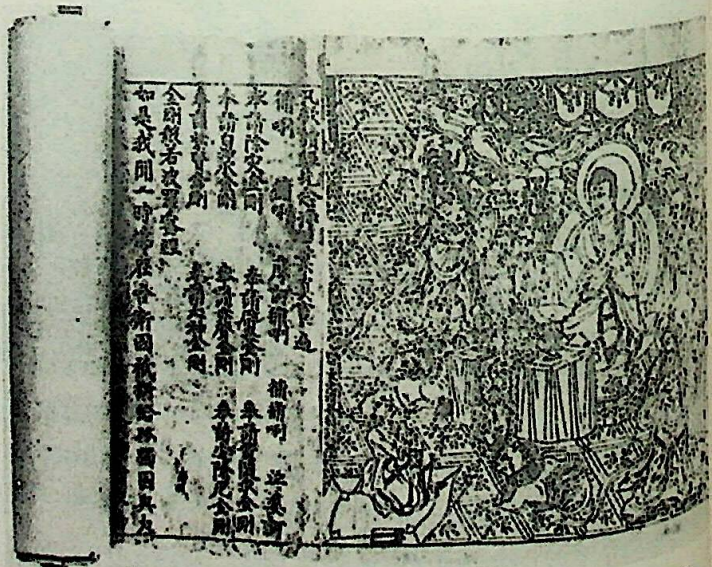 凡欲讀經先念淨口業真言遍
脩唎 脩唎 摩訶脩唎 脩脩唎 娑婆訶
奉請除災金剛 奉請辟毒金剛 奉請黃隨求金剛
奉請白淨水金剛 奉請赤聲金剛 奉請 金剛
奉請紫賢金剛 奉請大神金剛
金剛般若波羅蜜經
如是我聞一時佛在舍衛國祇樹給孤獨園與大